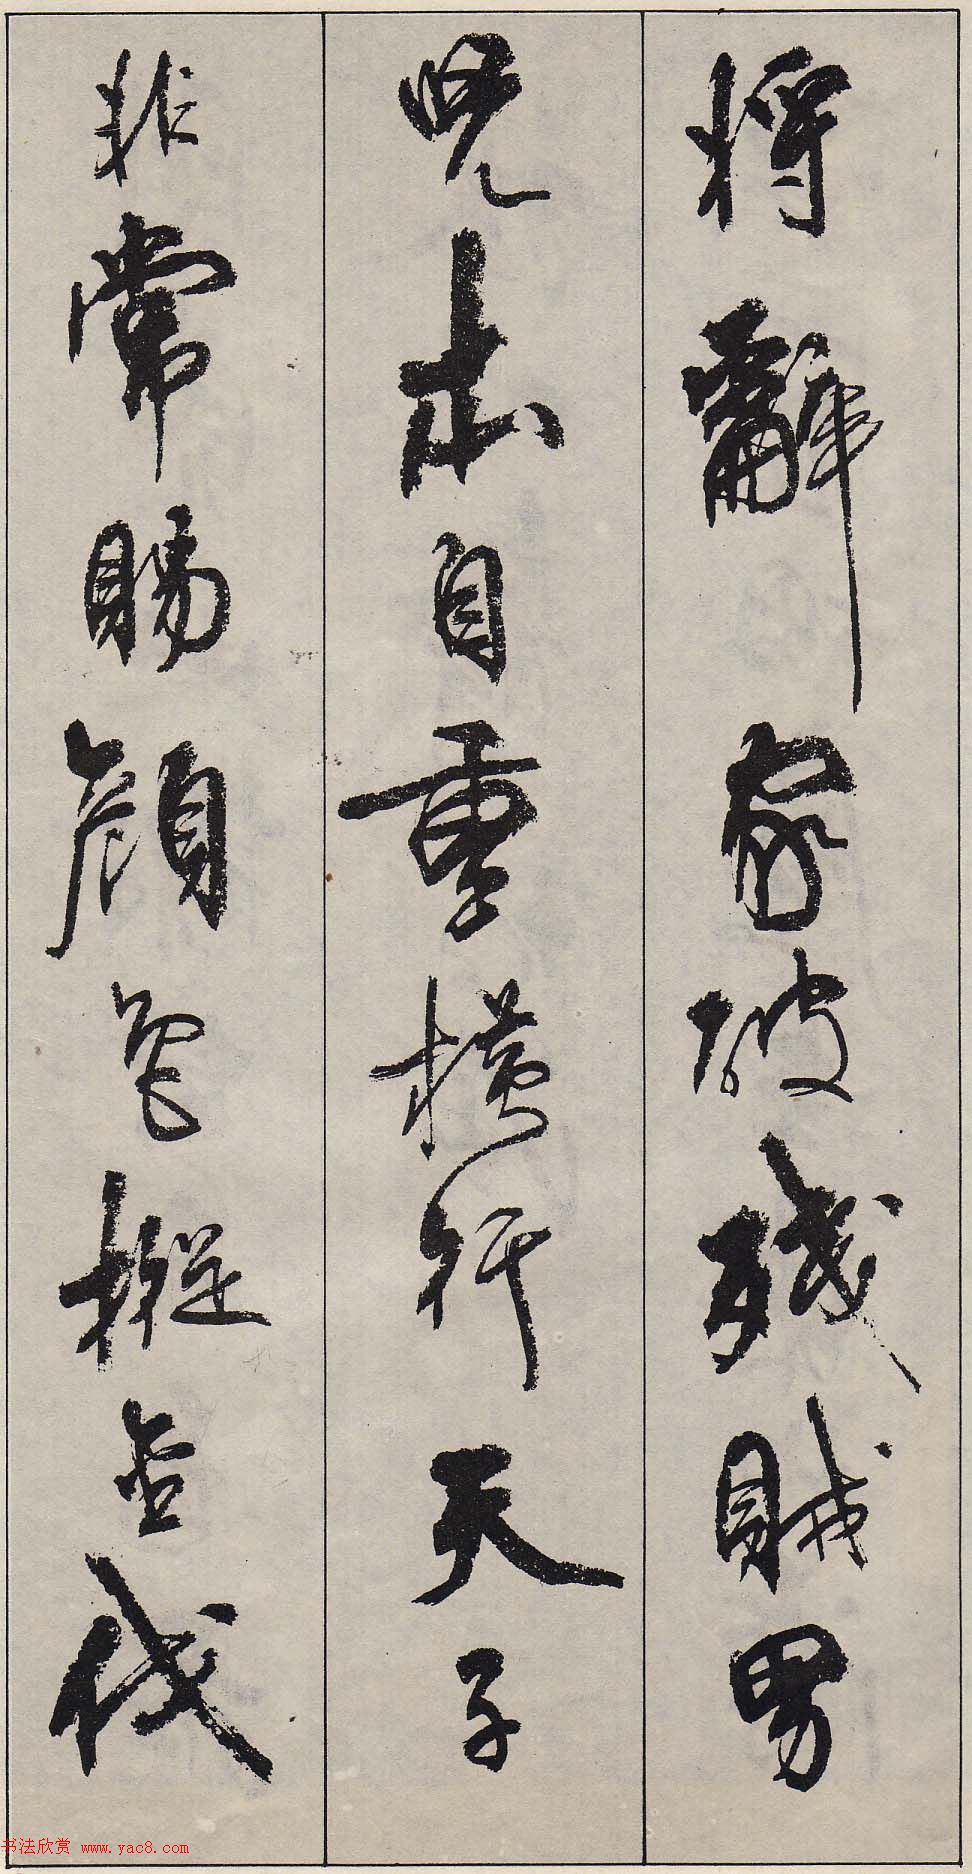 將辭家破殘賊男
兒本自重橫行天子
非常賜顏色摐金伐
书法欣赏 www.yac8.com